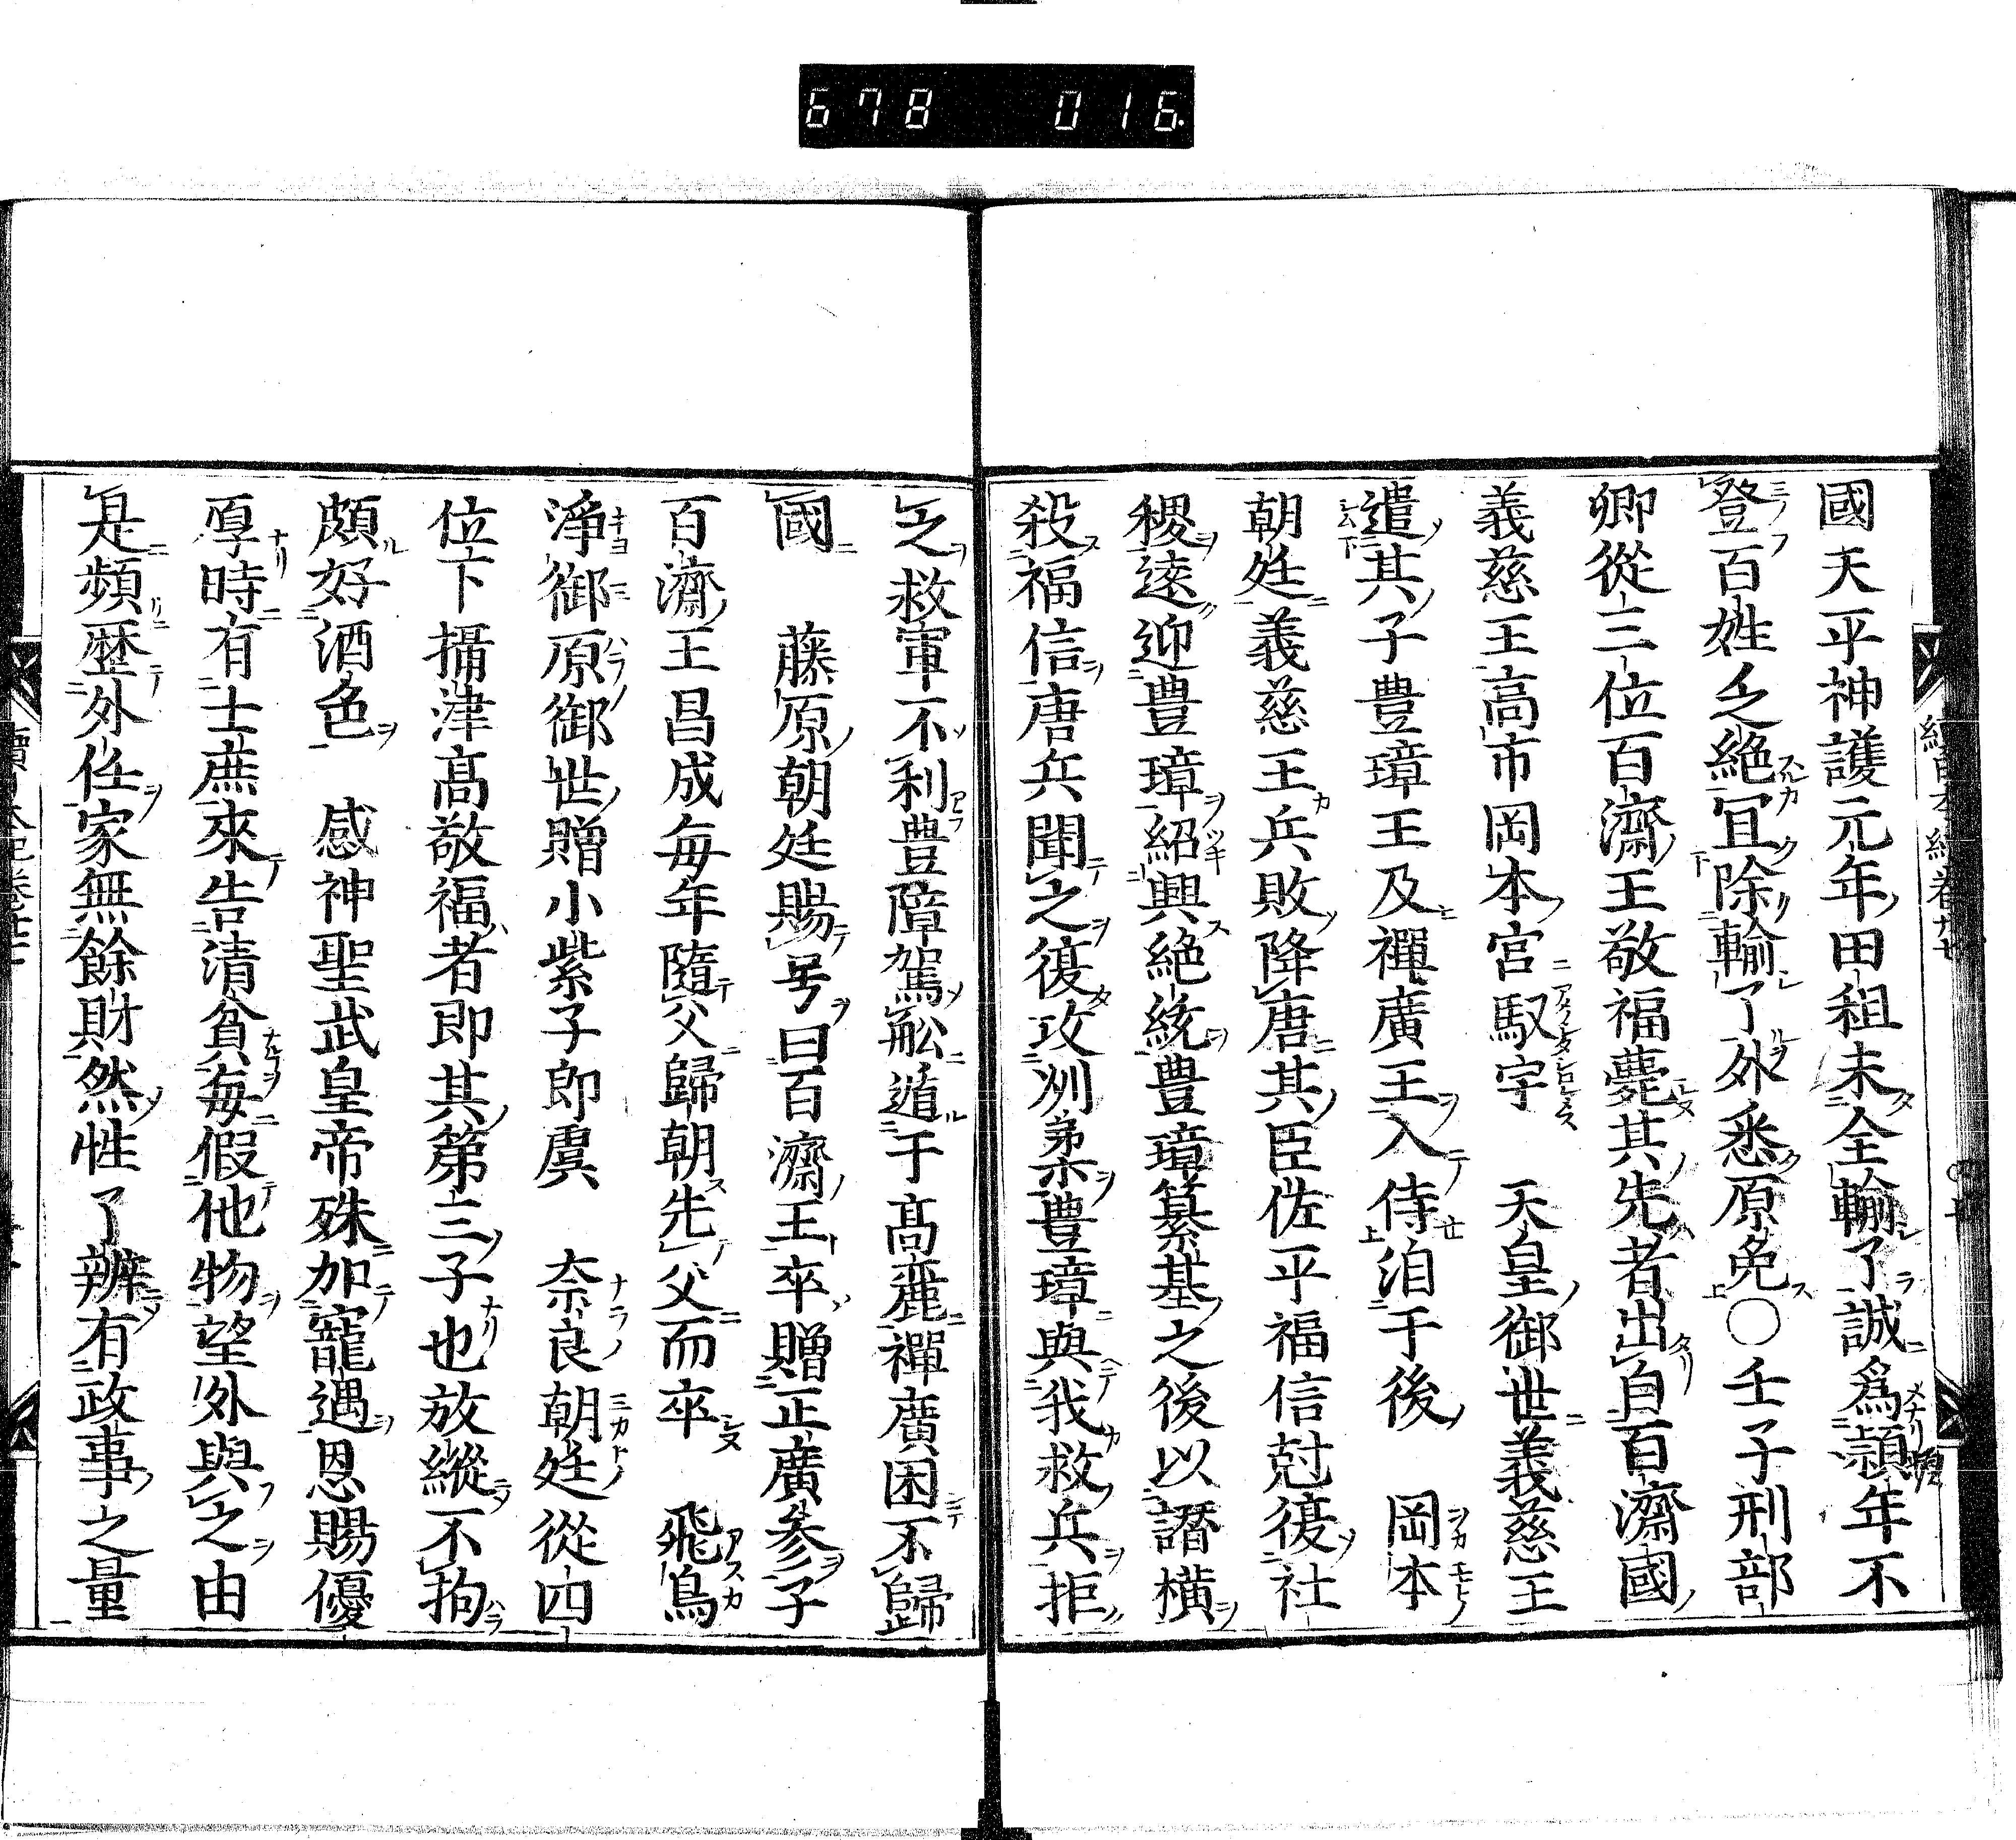 678 016
國天平神護元年田租未全輸了誠爲頴年不
登百姓乏絶冝除輸了外悉原免〇壬子刑部
卿從三位百濟王敬福薨其先者出自百濟國
義慈王高市岡本宮馭宇 天皇御世義慈王
遣其子豊璋王及禪廣王入侍洎于後 岡本
朝廷義慈王兵敗降唐其臣佐平福信尅復社
稷遠迎豊璋紹興絶統豊璋纂基之後以譖横
殺福信唐兵聞之復攻州柔豊璋與我救兵拒
之救軍不利豊障駕舩遁于髙麗禪廣因不歸
國 藤原朝廷賜号曰百濟王卒贈正廣参子
百濟王昌成毎年隨父歸朝先父而卒 飛鳥
淨御原御世贈小紫子郎虞 奈良朝廷從四
位下攝津髙敬福者即其第三子也放縱不拘
頗好酒色 感神聖武皇帝殊加寵遇恩賜優
厚時有士庶來告清貧毎假他物望外與之由
是頻歴外任家無餘財然性了辨有政事之量